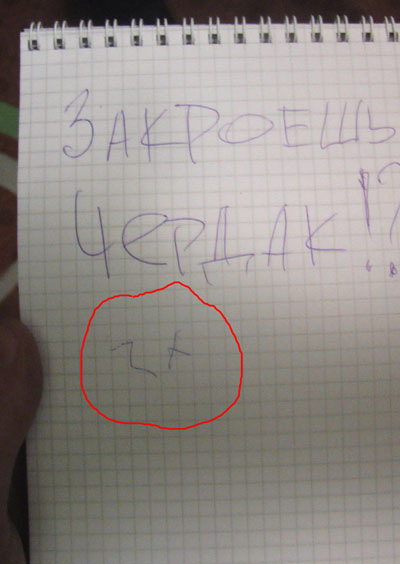 ЗАКРОЕШЬ
ЧЕРДАК!?